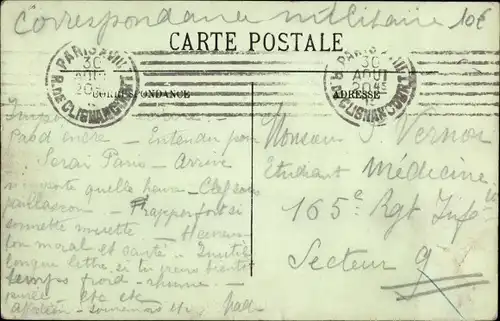 Correspondance militaire 10€
CARTE POSTALE
PARIS XVIII
30
AOUT
R. DE CLIGNANCOURT
PARIS XVIII
30
AOUT
R. DE CLIGNANCOURT
CORRESPONDANCE
ADRESSE
Pas d'encre — Entendu pour
Serai Paris — Arrive
n'importe quelle heure — Clef sous
paillasson — Frapper fort si
sonnette muette — Heureux
ton moral et santé — Inutile
longue lettre si tu viens bientôt
temps froid — rhume —
etc etc
Monsieur J. Vernon
Etudiant Médecine
165e Rgt Infie
Secteur 9